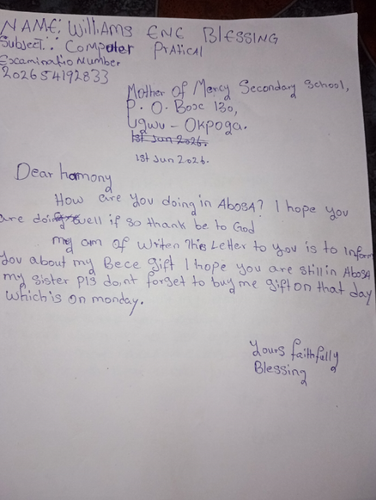 NAME: WILLIAMS ENE BLESSING
Subject: Computer Pratical
Examination Number
202654192833
Mother of Mercy Secondary School,
P. O. Boxe 130,
Ugwu - Okpoga.
1st Jun 2026.
1st Jun 2026.
Dear hamony
How are you doing in Abosa? I hope you
are doing well if so thank be to God
my am of writen This Letter to you is to Inform
you about my Bece gift I hope you are still in Abosa
my sister pls dont forget to buy me gift on that day
which is on monday.
Yours faithfully
Blessing